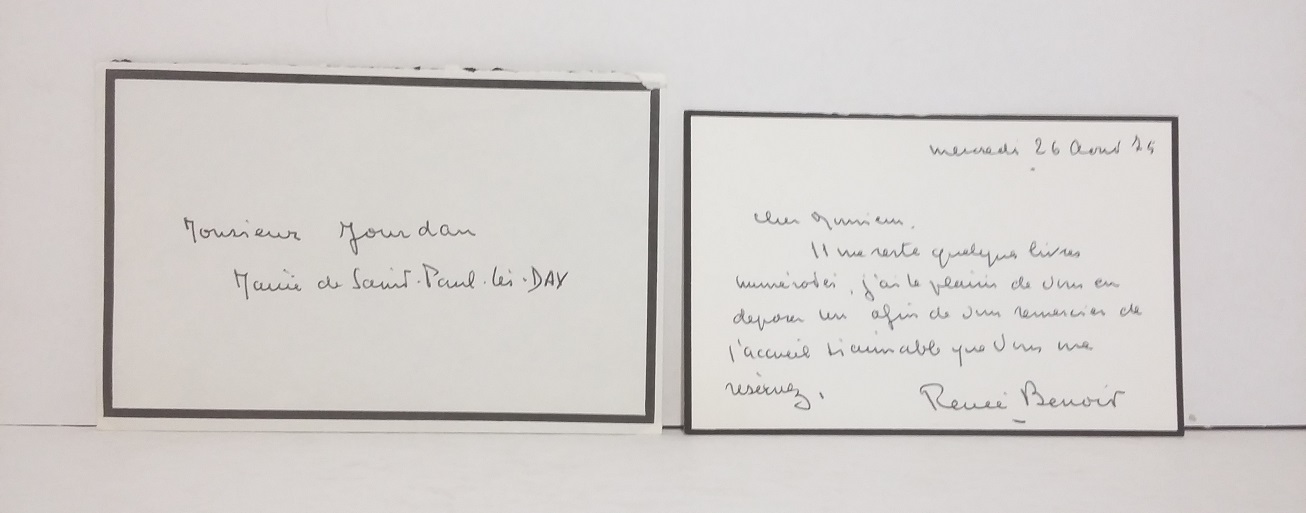 Monsieur Jourdan
Mairie de Saint-Paul-lès-DAX
mercredi 26 Août 75
Cher Monsieur,
Il me reste quelques livres
numérotés, j'ai le plaisir de vous en
déposer un afin de vous remercier de
l'accueil si aimable que vous me
réservez.
Renée Benoit